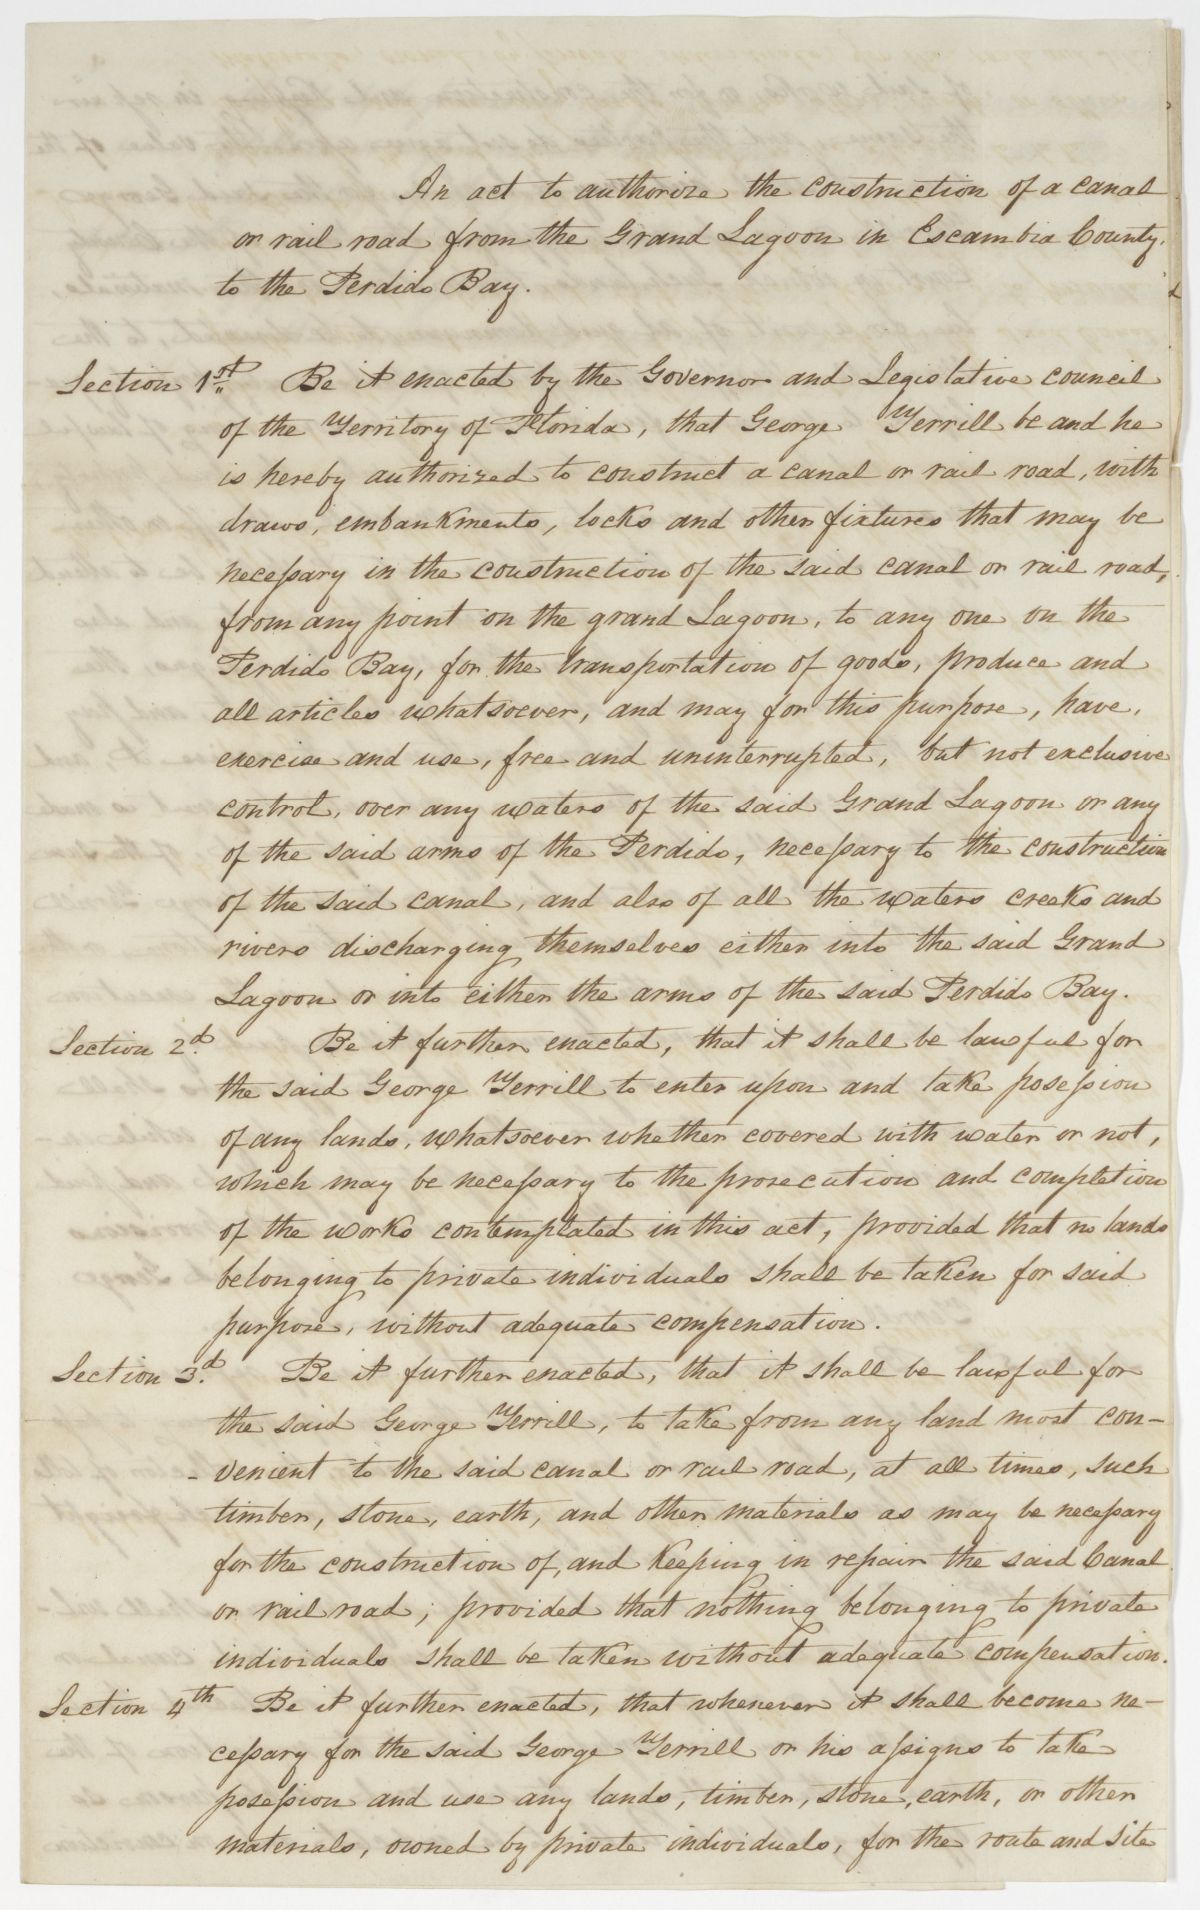 An act to authorize the construction of a canal
or rail road from the Grand Lagoon in Escambia County,
to the Perdido Bay.
Section 1st Be it enacted by the Governor and Legislative council
of the Territory of Florida, that George Terrill be and he
is hereby authorized to construct a canal or rail road, with
draws, embankments, locks and other fixtures that may be
necessary in the construction of the said canal or rail road,
from any point on the grand Lagoon, to any one on the
Perdido Bay, for the transportation of goods, produce and
all articles whatsoever, and may for this purpose, have,
exercise and use, free and uninterrupted, but not exclusive
control, over any waters of the said Grand Lagoon or any
of the said arms of the Perdido, necessary to the construction
of the said canal, and also of all the waters creeks and
rivers discharging themselves either into the said Grand
Lagoon or into either the arms of the said Perdido Bay.
Section 2d. Be it further enacted, that it shall be lawful for
the said George Terrill to enter upon and take posession
of any lands, whatsoever whether covered with water or not,
which may be necessary to the prosecution and completion
of the works contemplated in this act, provided that no lands
belonging to private individuals shall be taken for said
purpose, without adequate compensation.
Section 3d. Be it further enacted, that it shall be lawful for
the said George Terrill, to take from any land most con-
- venient to the said canal or rail road, at all times, such
timber, stone, earth, and other materials as may be necessary
for the construction of, and keeping in repair the said Canal
or rail road; provided that nothing belonging to private
individuals shall be taken without adequate compensation.
Section 4th Be it further enacted, that whenever it shall become ne-
cessary for the said George Terrill or his assigns to take
posession and use any lands, timber, stone, earth, or other
materials, owned by private individuals, for the route and site